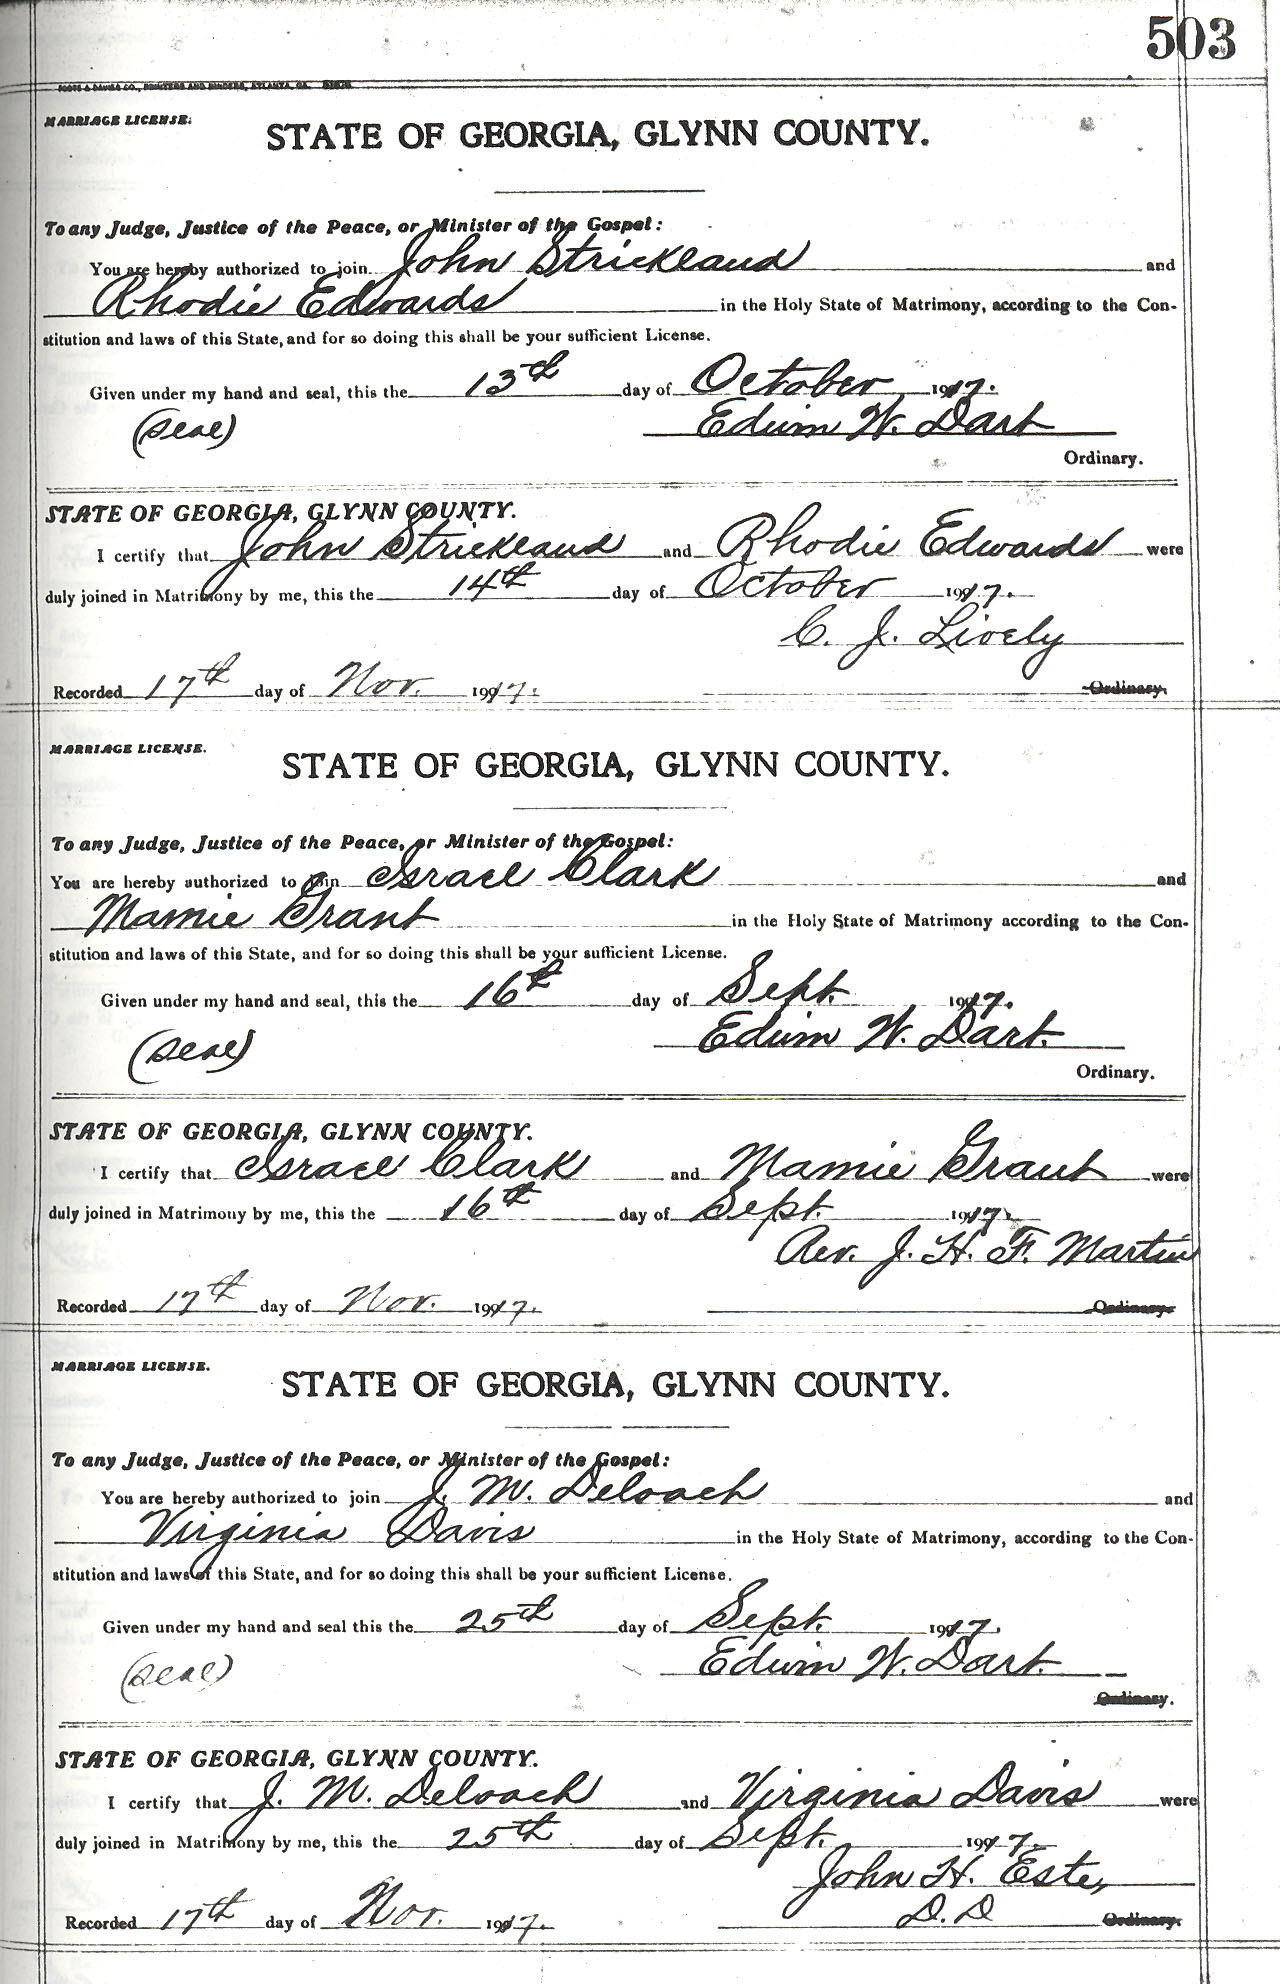 503
FOOTE & DAVIES CO., PRINTERS AND BINDERS, ATLANTA, GA.
MARRIAGE LICENSE.
STATE OF GEORGIA, GLYNN COUNTY.
To any Judge, Justice of the Peace, or Minister of the Gospel:
You are hereby authorized to join John Strickland and
Rhodie Edwards in the Holy State of Matrimony, according to the Con-
stitution and laws of this State, and for so doing this shall be your sufficient License.
Given under my hand and seal, this the 13th day of October 1917.
(Seal) Edwin W. Dart
Ordinary.
STATE OF GEORGIA, GLYNN COUNTY.
I certify that John Strickland and Rhodie Edwards were
duly joined in Matrimony by me, this the 14th day of October 1917.
C. J. Lively
Recorded 17th day of Nov. 1917. Ordinary.
MARRIAGE LICENSE.
STATE OF GEORGIA, GLYNN COUNTY.
To any Judge, Justice of the Peace, or Minister of the Gospel:
You are hereby authorized to join Israel Clark and
Mamie Grant in the Holy State of Matrimony according to the Con-
stitution and laws of this State, and for so doing this shall be your sufficient License.
Given under my hand and seal, this the 16th day of Sept. 1917.
(Seal) Edwin W. Dart.
Ordinary.
STATE OF GEORGIA, GLYNN COUNTY.
I certify that Israel Clark and Mamie Grant were
duly joined in Matrimony by me, this the 16th day of Sept. 1917.
Rev. J. H. F. Martin
Recorded 17th day of Nov. 1917. Ordinary.
MARRIAGE LICENSE.
STATE OF GEORGIA, GLYNN COUNTY.
To any Judge, Justice of the Peace, or Minister of the Gospel:
You are hereby authorized to join J. M. Deloach and
Virginia Davis in the Holy State of Matrimony, according to the Con-
stitution and laws of this State, and for so doing this shall be your sufficient License.
Given under my hand and seal this the 25th day of Sept. 1917.
(Seal) Edwin W. Dart.
Ordinary.
STATE OF GEORGIA, GLYNN COUNTY.
I certify that J. M. Deloach and Virginia Davis were
duly joined in Matrimony by me, this the 25th day of Sept. 1917.
John H. Este,
Recorded 17th day of Nov. 1917. D.D Ordinary.